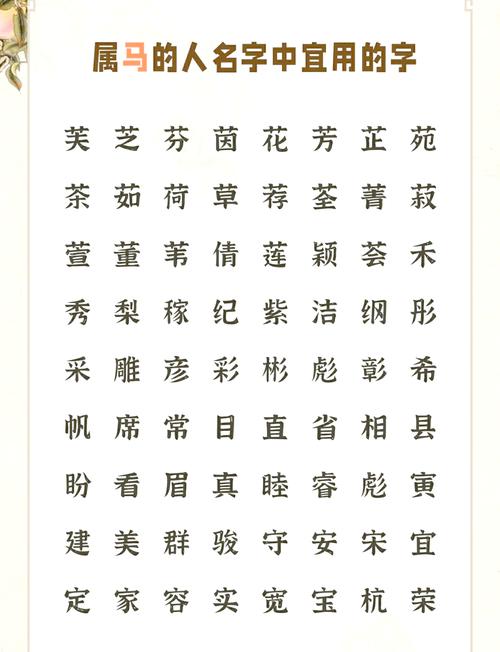 属马的人名字中宜用的字
芙 芝 芬 茵 花 芳 芷 苑
茶 茹 荷 草 荐 荃 菁 菽
萱 董 苇 倩 莲 颖 荟 禾
秀 梨 稼 纪 紫 洁 纲 彤
采 雕 彦 彩 彬 彪 彰 希
帆 席 常 目 直 省 相 县
盼 看 眉 真 睦 睿 彪 寅
建 美 群 骏 守 安 宋 宜
定 家 容 实 宽 宝 杭 荣